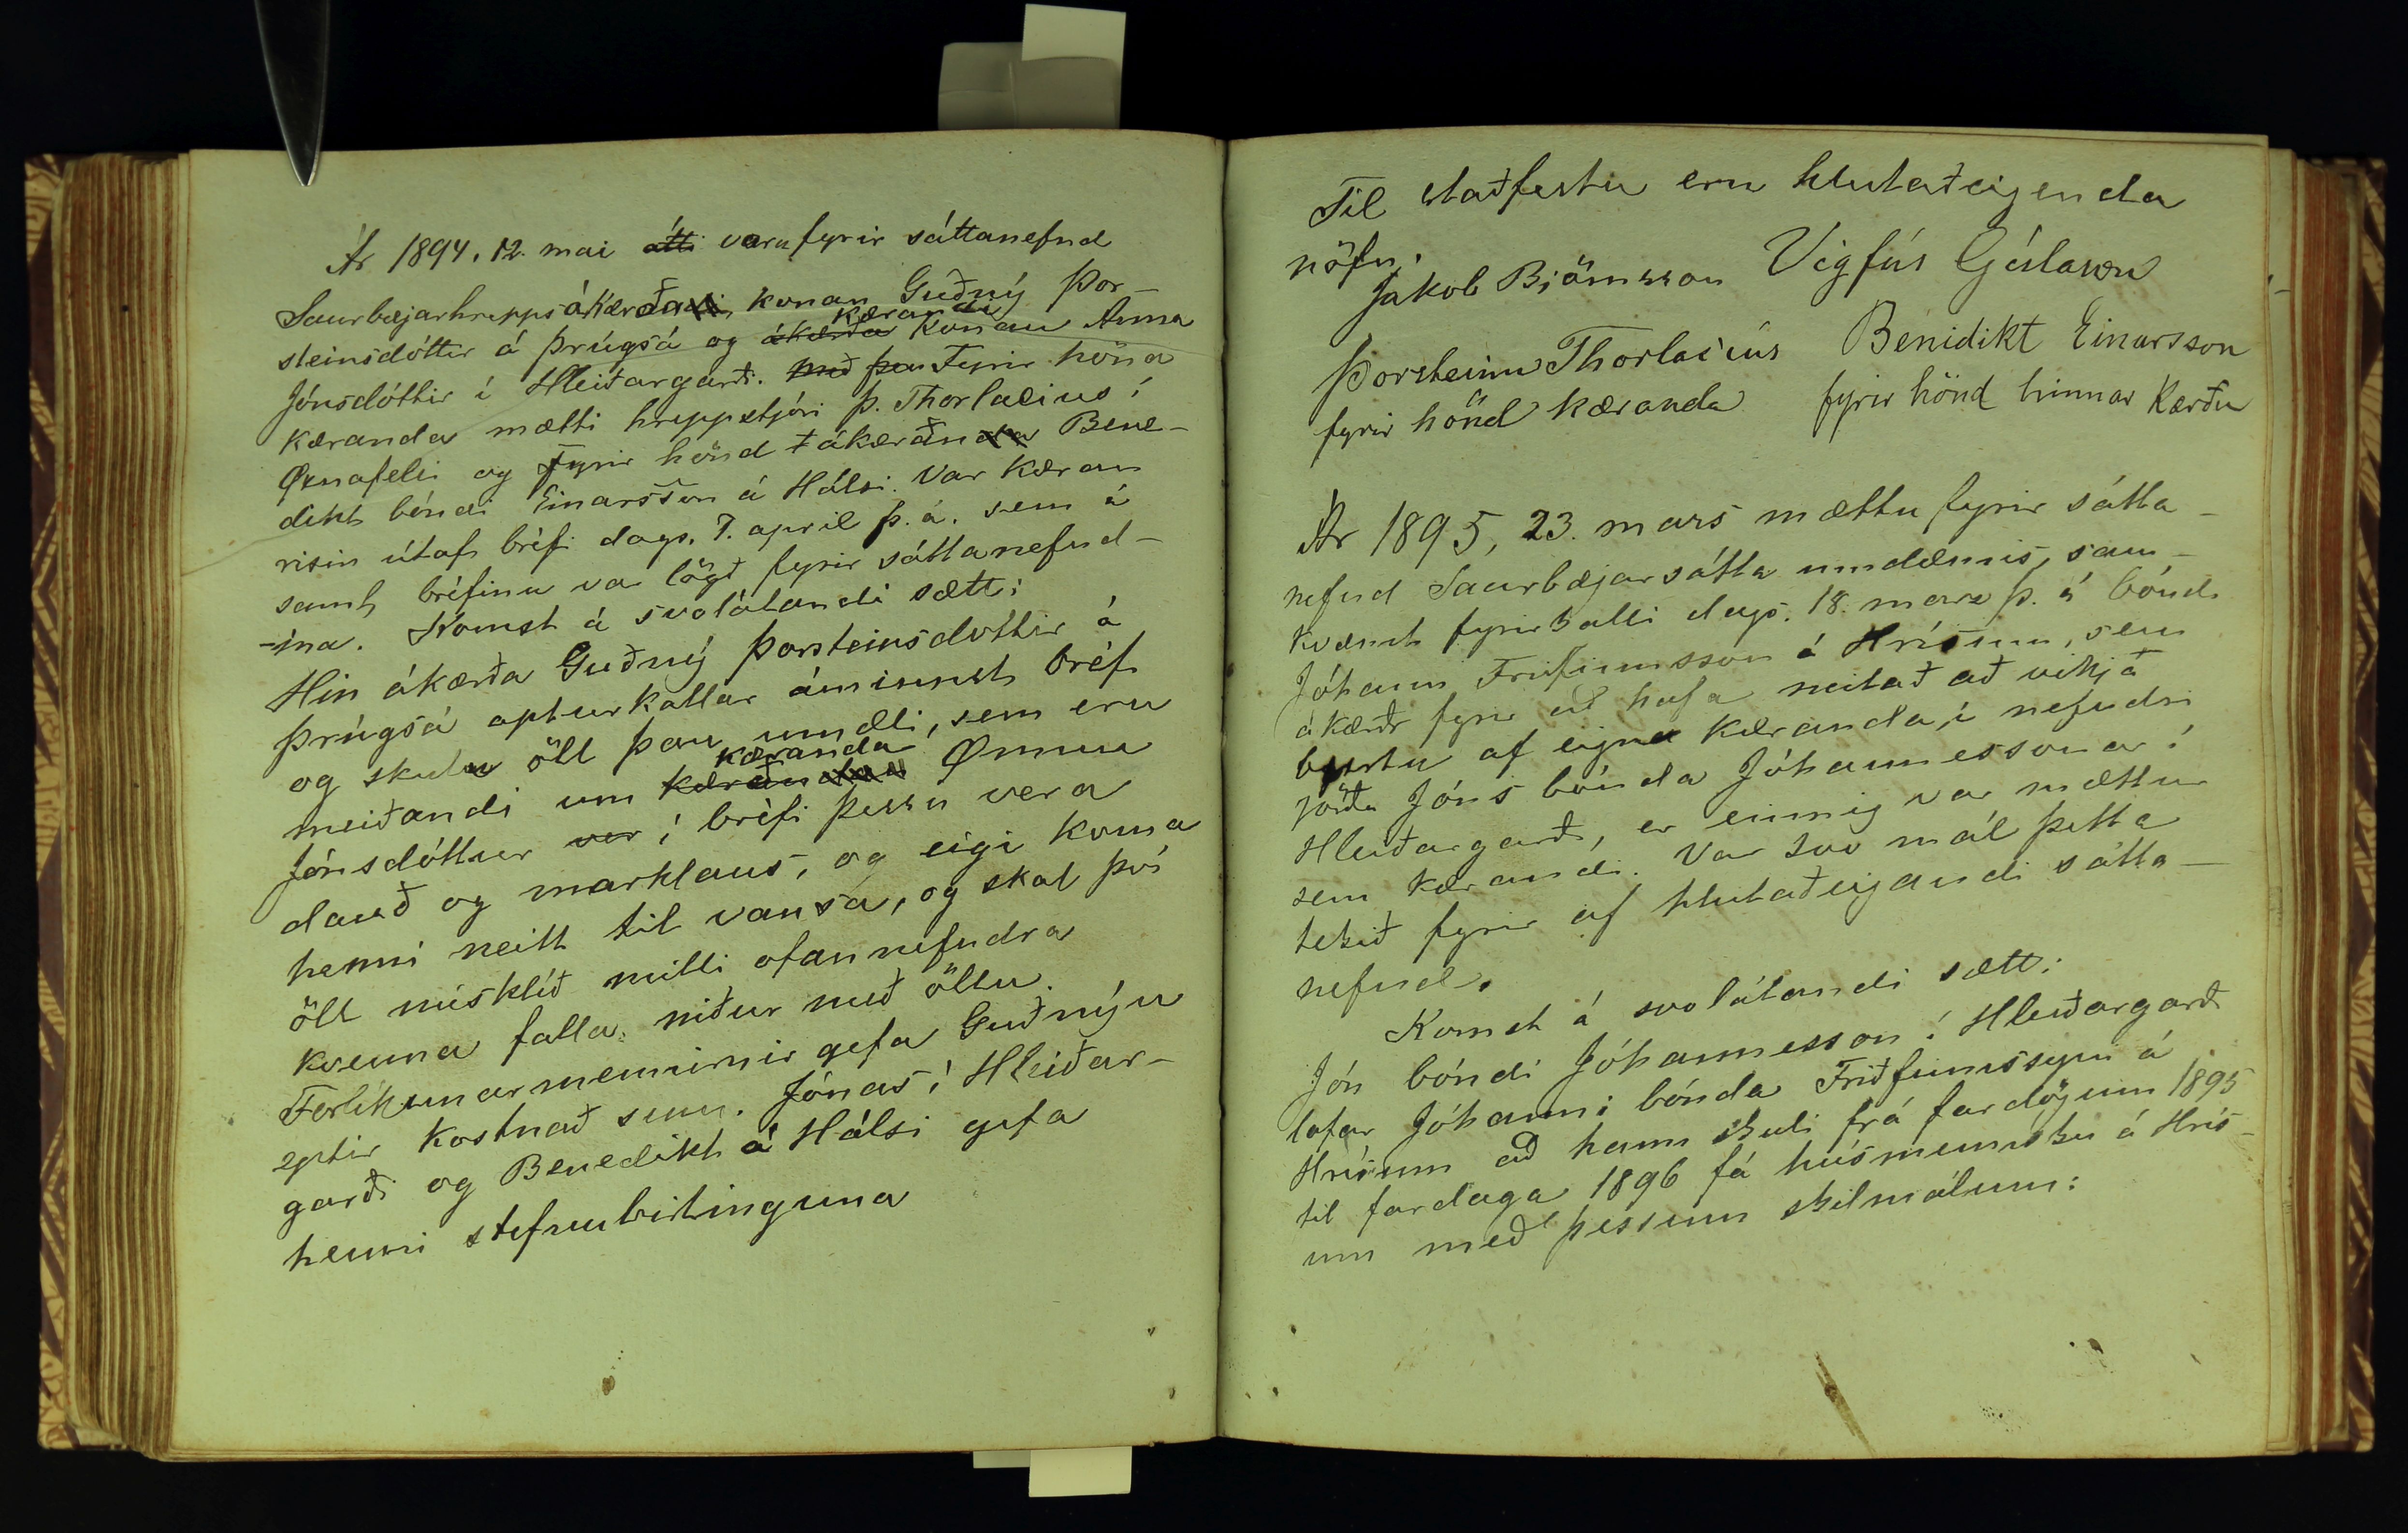 Ár 1894, 12. mai átti voru fyrir sáttanefnd
Saurbæjarhrepps ákærða konan Guðný Þor-
steinsdóttir á Þrúgsá og ákærða kærandi konan Anna
Jónsdóttir í Hleiðargarði. með þær Fyrir hönd
kæranda mætti hreppstjóri Þ. Thorlacius í
Öxnafelli og fyrir hönd ákærðu Bene-
dikt bóndi Einarsson á Hálsi. Var kæran
risin útaf bréfi dags. 7. april þ. á. sem á
samt bréfinu var lögð fyrir sáttanefnd-
-ina. Komst á svolátandi sætt:
Hin ákærða Guðný Þorsteinsdóttir á
Þrúgsá apturkallar áminnst bréf
og skulu öll þau ummæli, sem eru
meiðandi um kæranda Önnu
Jónsdóttur ver í bréfi þessu vera
dauð og marklaus, og eigi koma
henni neitt til vansa, og skal því
öll misklíð milli ofannefndra
kvenna falla niður með öllu.
Forlíkunarmennirnir gefa Guðnýu
eptir kostnað sinn. Jónas í Hleiðar-
garði og Benedikt á Hálsi gefa
henni stefnubirtinguna
Til staðfestu eru hlutaðeigenda
nöfn.
Jakob Björnsson Vigfús Gíslason
Þorsteinn Thorlacius Benidikt Einarsson
fyrir hönd kæranda fyrir hönd hinnar kærðu
Ár 1895, 23. mars mættu fyrir sátta-
nefnd Saurbæjarsátta umdæmis, sam-
kvæmt fyrirkalli dags. 18. mars þ. á bóndi
Jóhann Friðfinnsson á Hrísum, sem
ákærðr fyrir að hafa neitað að víkja
burtu af eign kæranda, í nefndri
jörðu Jóns bónda Jóhannessonar í
Hleiðargarði, er einnig var mættur
sem kærandi. Var svo mál þetta
tekið fyrir af hlutaðeigandi sátta-
nefnd.
Komst á svolátandi sætt:
Jón bóndi Jóhannesson í Hleiðargarði
lofar Jóhanni bónda Friðfinnssyni á
Hrísum að hann skuli frá fardögum 1895
til fardaga 1896 fá húsmennsku á Hrís-
um með þessum skilmálum: